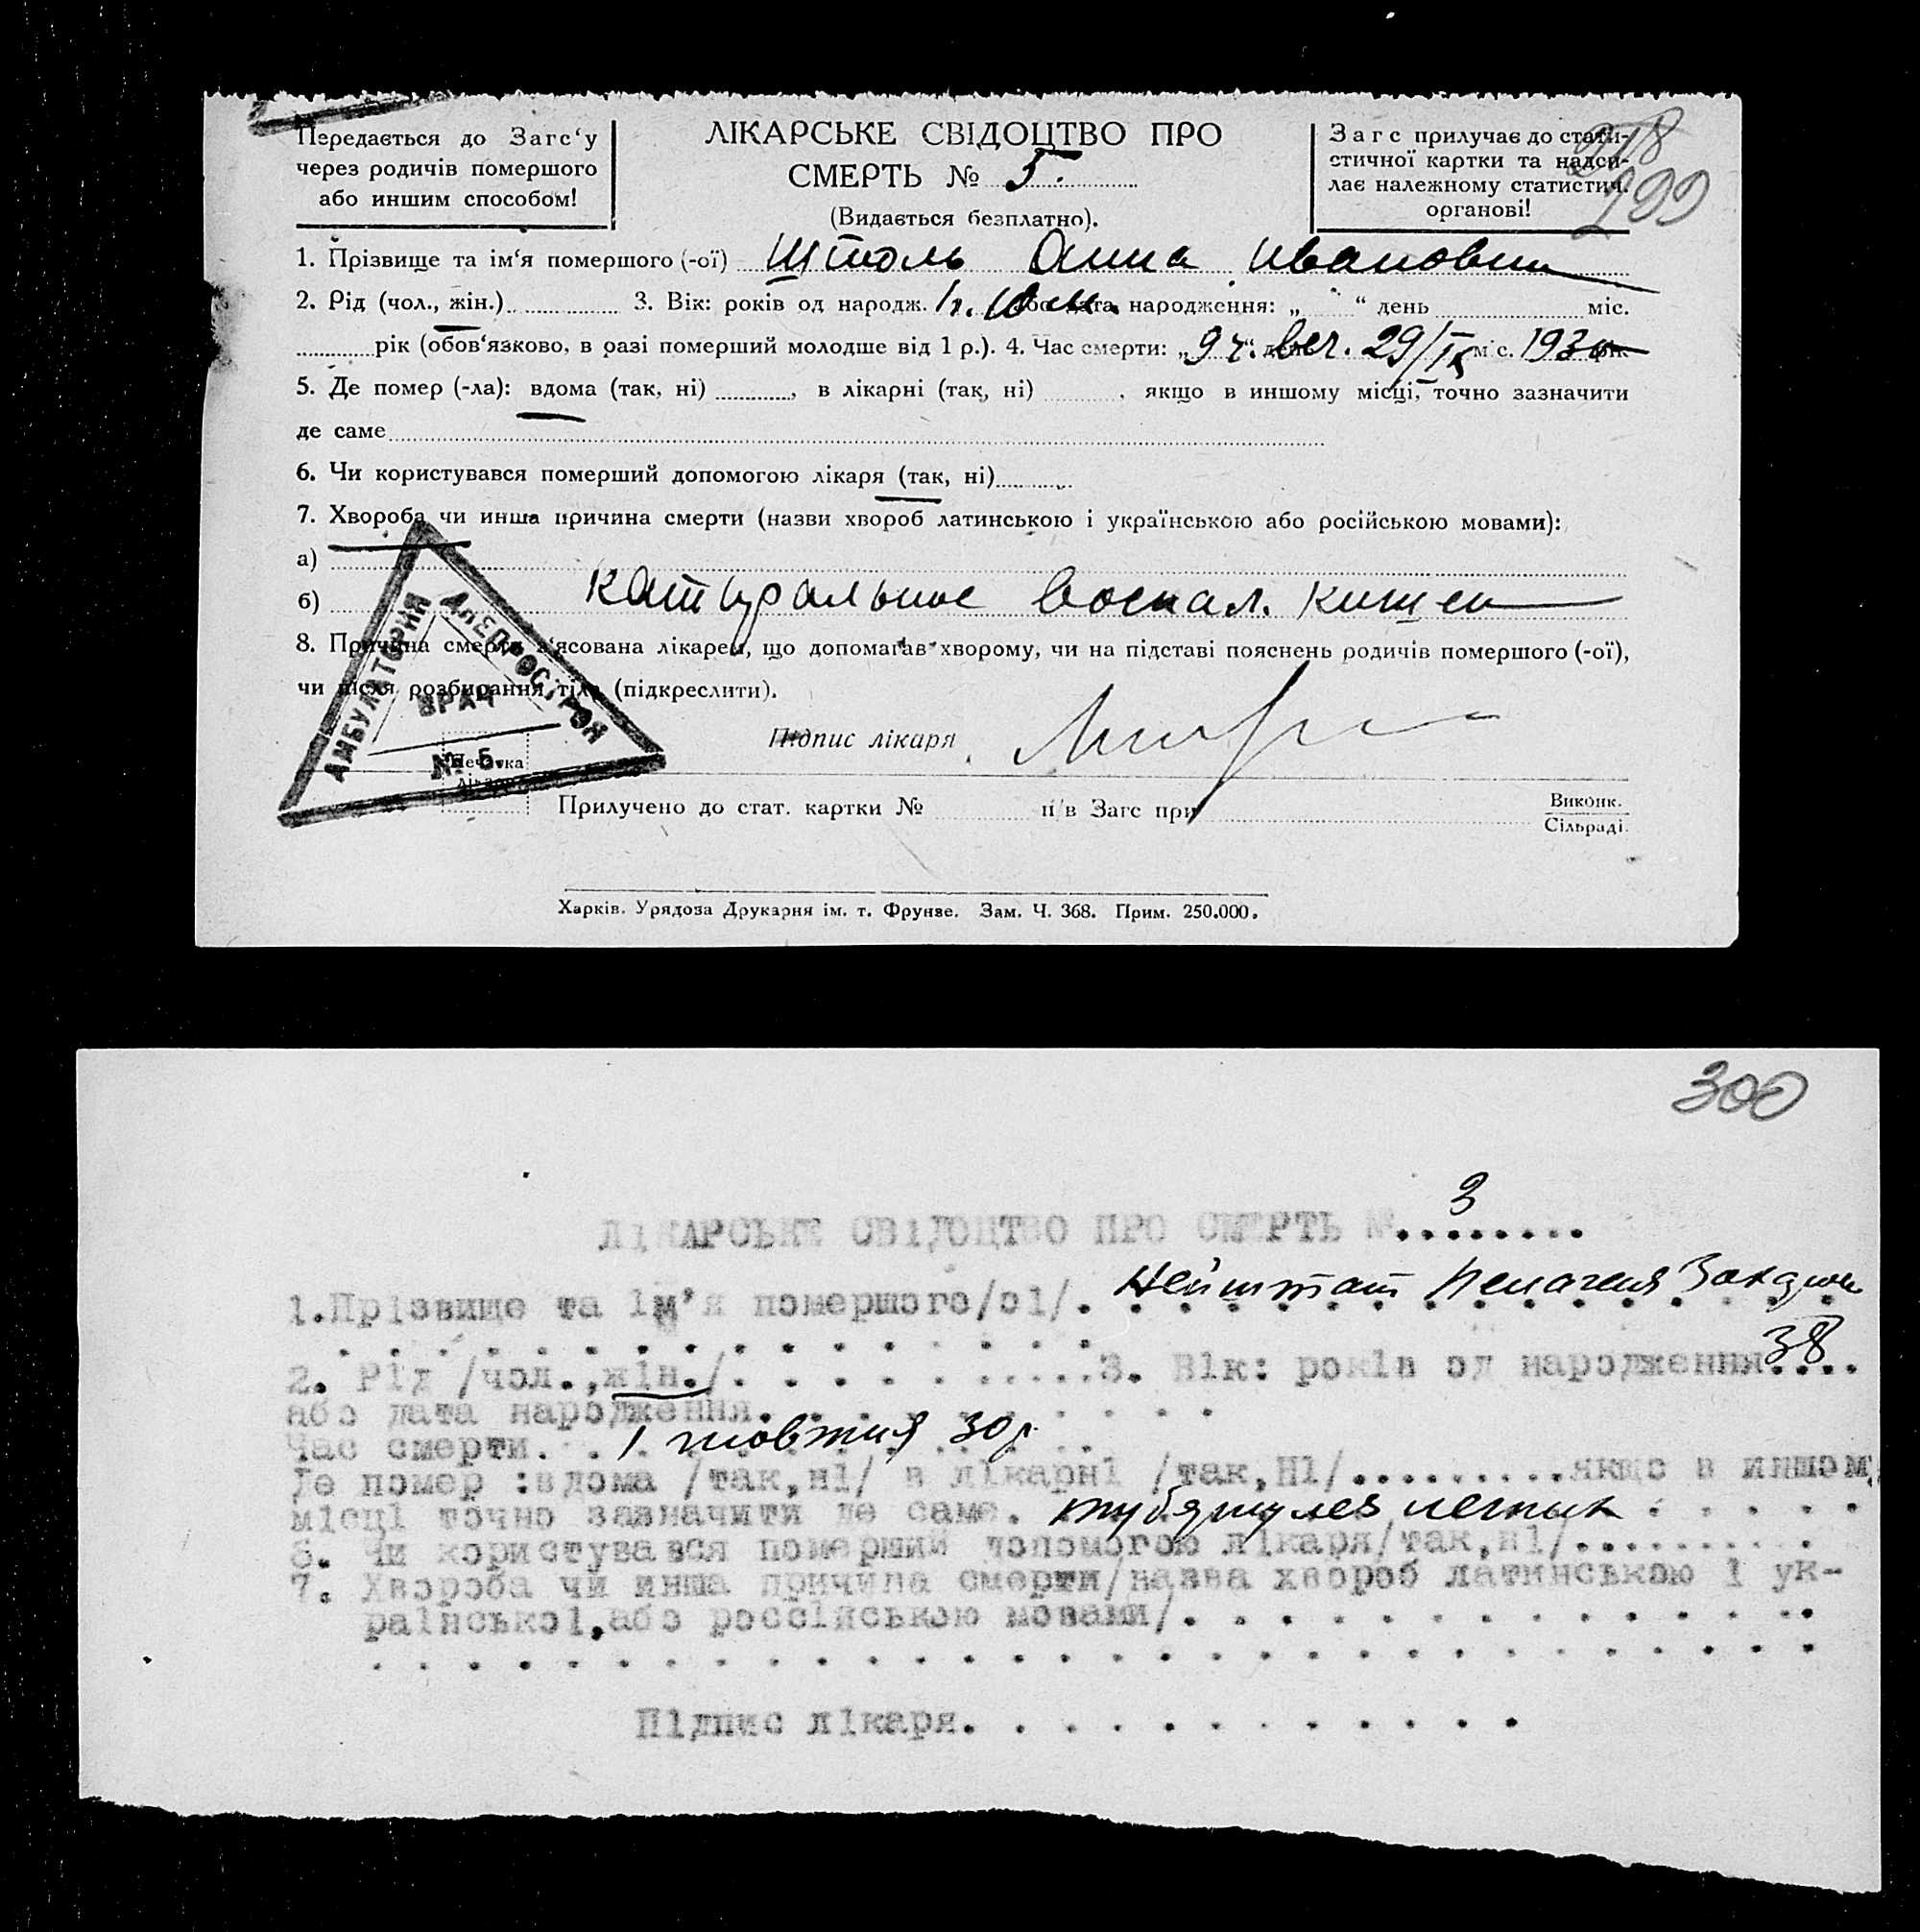 Передається до Загс‘у
через родичів помершого
або иншим способом!
ЛІКАРСЬКЕ СВІДОЦТВО ПРО
СМЕРТЬ № 5.
(Видається безплатно).
Загс прилучає до стати-
стичної картки та надси-
лає належному статистич.
органові!
299
1. Прізвище та ім‘я помершого (-ої) Штоль Анна Ивановна
2. Рід (чол., жін.) 3. Вік: років од народж. 1г. 10 м. або дата народження: „ “ день міс.
рік (обов‘язково, в разі померший молодше від 1 р.). 4. Час смерти: „9 ч.“ день веч. 29/ІХ міс. 1930
5. Де помер (-ла): вдома (так, ні) , в лікарні (так, ні) , якщо в иншому місці, точно зазначити
де саме
6. Чи користувався померший допомогою лікаря (так, ні)
7. Хвороба чи инша причина смерти (назви хвороб латинською і українською або російською мовами):
а)
б) Катаральное воспал. кишек
8. Причина смерти з‘ясована лікарем, що допомагав хворому, чи на підставі пояснень родичів помершого (-ої),
чи після розбирання тіла (підкреслити).
АМБУЛАТОРИЯ ДНЕПРОСТРОЯ
ВРАЧ
№ 5
Печатка
Підпис лікаря
Прилучено до стат. картки № п/в Загс при Виконк.
Сільраді.
Харків. Урядова Друкарня ім. т. Фрунзе. Зам. Ч. 368. Прим. 250.000.
300
ЛІКАРСЬКЕ СВІДОЦТВО ПРО СМЕРТЬ № 3
1.Прізвище та ім’я помершого/оі/. Нейштат Пелагея
2. Рід /чол.,жін./ 3. Вік: років од народження 38
або дата народження.
Час смерти. 1 жовтня 30 р.
Де помер :вдома /так,ні/ в лікарні /так,Ні/.........якщо в иншому
місці точно зазначити де саме. туберкулез легких
6. Чи користувався померший допомогою лікаря/так,ні/..........
7. Хвороба чи инша причина смерти/назва хвороб латинською і ук-
раінської,або россійською мовами/.
Підпис лікаря.